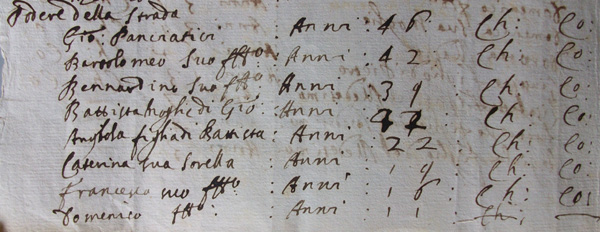 Podere della Strada
Gio: Panciatici : Anni : 46 : Ch: Co:
Bartolomeo Suo ffto : Anni : 42 : Ch: Co:
Bernardino Suo ffto : Anni : 39 : Ch: Co:
Battista di Gio : Anni : Ch: Co:
Angiola figlia di Battista : Anni : 22 : Ch: Co:
Caterina sua Sorella : Anni : 19 : Ch: Co:
Francesco suo ffto : Anni : 16 : Ch: Co:
Domenico ffto : Anni : 11 : Ch: